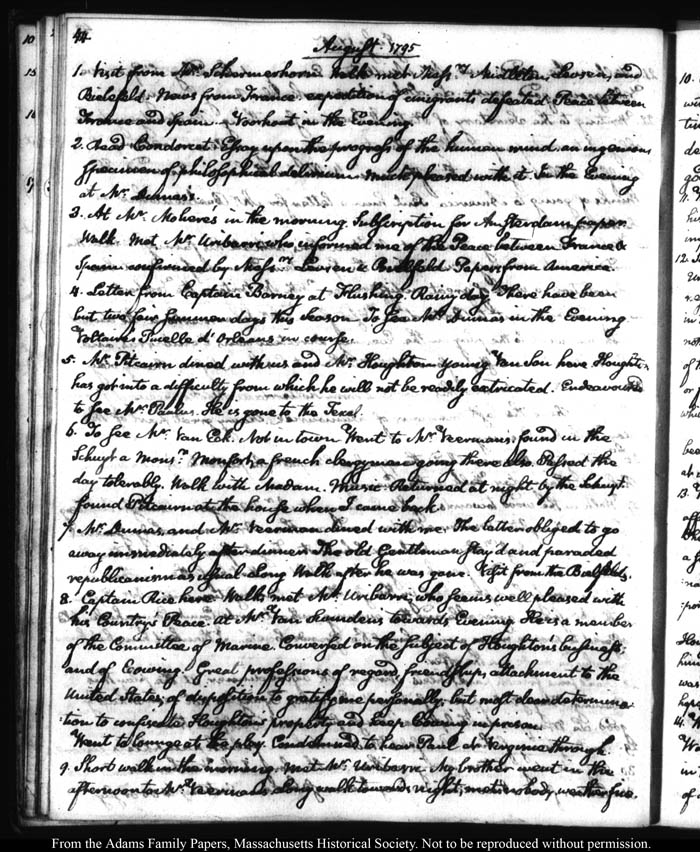 44
August. 1795
1. Visit from Mr. Schermerhorn. Walk met Messrs. Middleton, Levsen, and
Bielefeld. News from France. expedition of emigrants defeated. Peace between
France and Spain. Voorhout in the Evening.
2. Read Condorcet: Essay upon the progress of the human mind. an ingenious
specimen of philosophical delirium. Much pleased with it. In the Evening
at Mr. Dumas's
3. At Mr. Moliere's in the morning. Subscription for Amsterdam paper.
Walk. Met Mr. Uribarri, who informed me of the Peace between France &
Spain confirmed by Messrs. Levsen & Bielfeld. Papers from America.
4. Letter from Captain Barney at Flushing. Rainy day. There have been
but two fair summer days this Season. To see Mr. Dumas in the Evening
Voltaire's Pucelle d'Orleans in course.
5. Mr. Pitcairn dined with us and Mr. Houghton. young Van Son here. Hought:n
has got into a difficulty from which he will not be readily extricated. Endeavoured
to see Mr. Paulus. He is gone to the Texel.
6. To see Mr. Van Eck. Not in town. Went to Mr. Veerman's, found in the
Schuyt a Monsr. Monfort, a french clergyman going there also. Passed the
day tolerably. Walk with Madam. Music. Returned at night by the Schuyt
found Pitcairn at the house when I came back.
7. Mr. Dumas, and Mr. Veerman dined with me. The latter obliged to go
away immediately after dinner. The old Gentleman stay'd and paraded
republicanism as usual. Long Walk after he was gone. Visit from the Bielfelds.
8. Captain Rice here. Walk met Mr. Uribarri, who seems well pleased with
his Country's Peace. At Mr. Van Staunden's towards Evening. He is a member
of the Committee of Marine. Conversed on the subject of Houghton's business,
and of Cowing. Great professions of regard, friendship, attachment to the
United States, of disposition to gratify me personally, but most clear determina-
tion to confiscate Houghton's property and keep Cowing in prison.
Went to lounge at the play. Condemned to hear Paul & Virginia through.
9. Short walk in the morning. Met Mr. Uribarri. My brother went in the
afternoon to Mr. Veerman's. Long walk towards night, met nobody, weather fine.
From the Adams Family Papers, Massachusetts Historical Society. Not to be reproduced without permission.